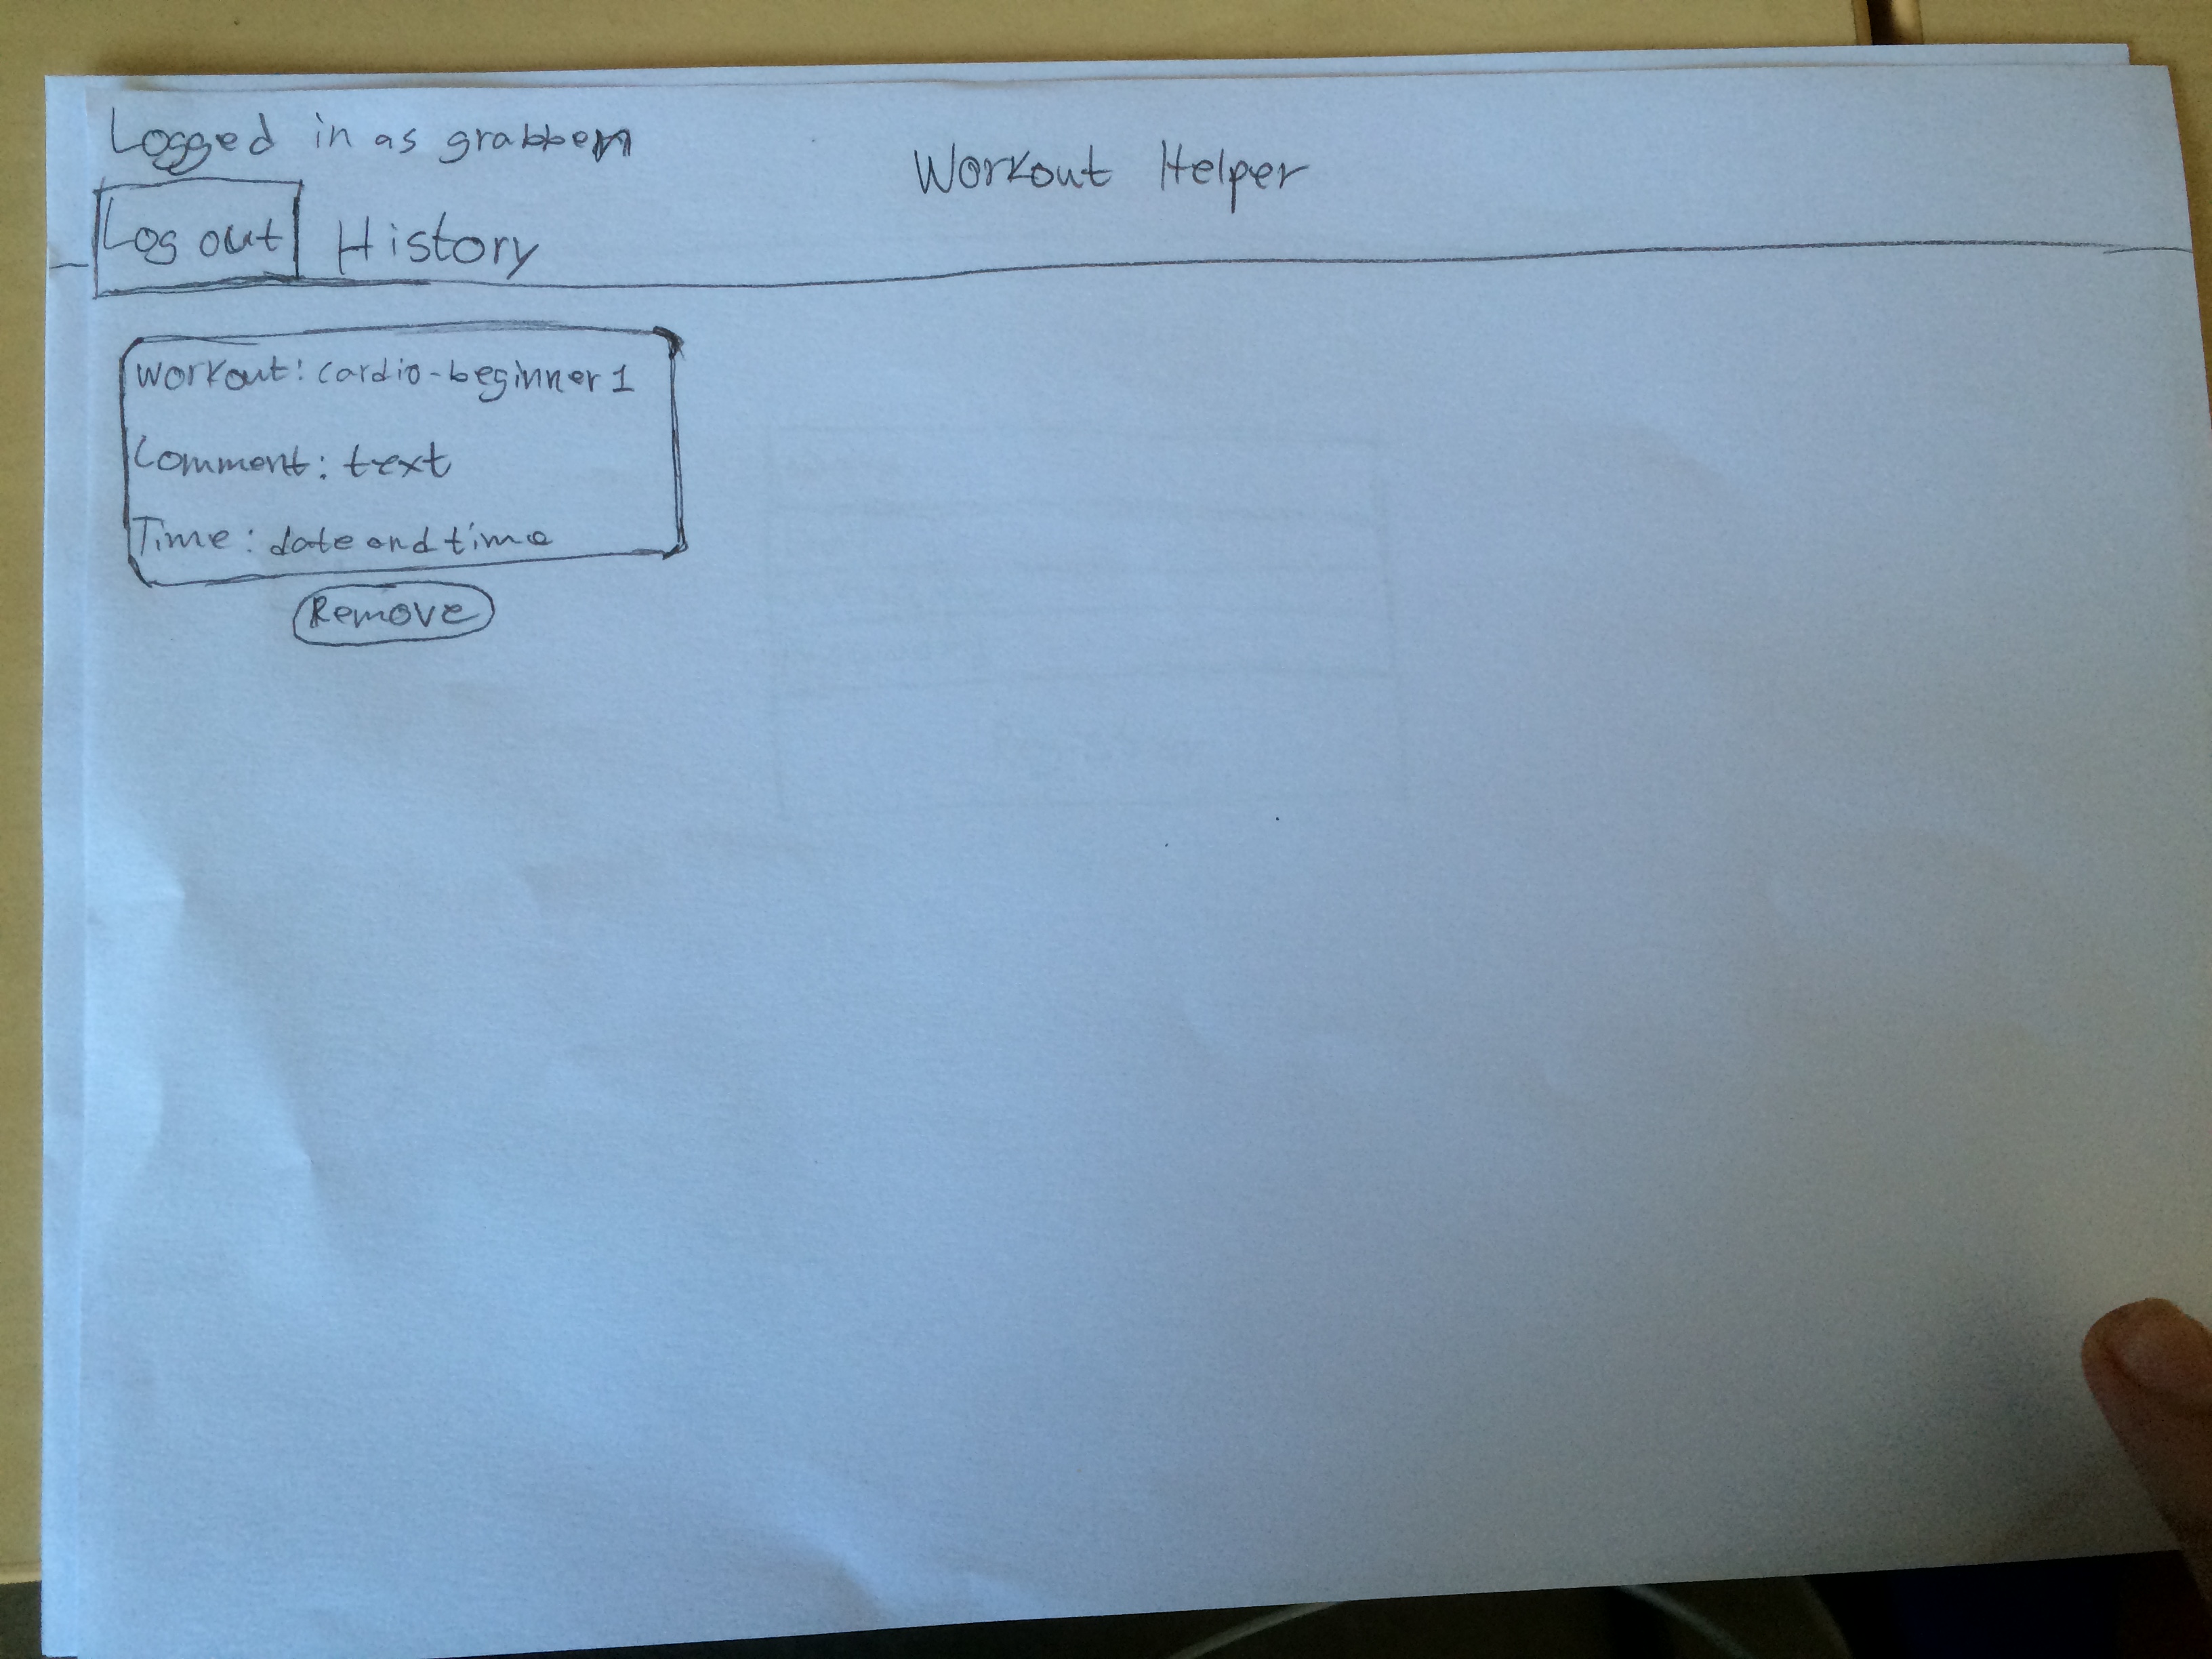 Logged in as grabben
Workout Helper
Log out History
Workout: cardio-beginner 1
Comment: text
Time: date and time
Remove